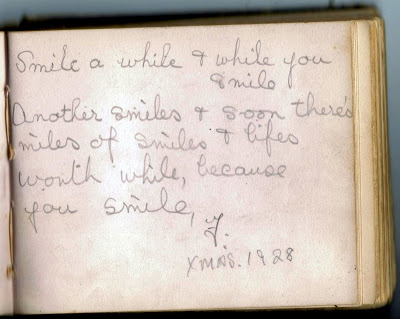 Smile a while & while you
smile
Another smiles & soon there's
miles of smiles & lifes
worth while, because
you smile,
J.
XMAS. 1928